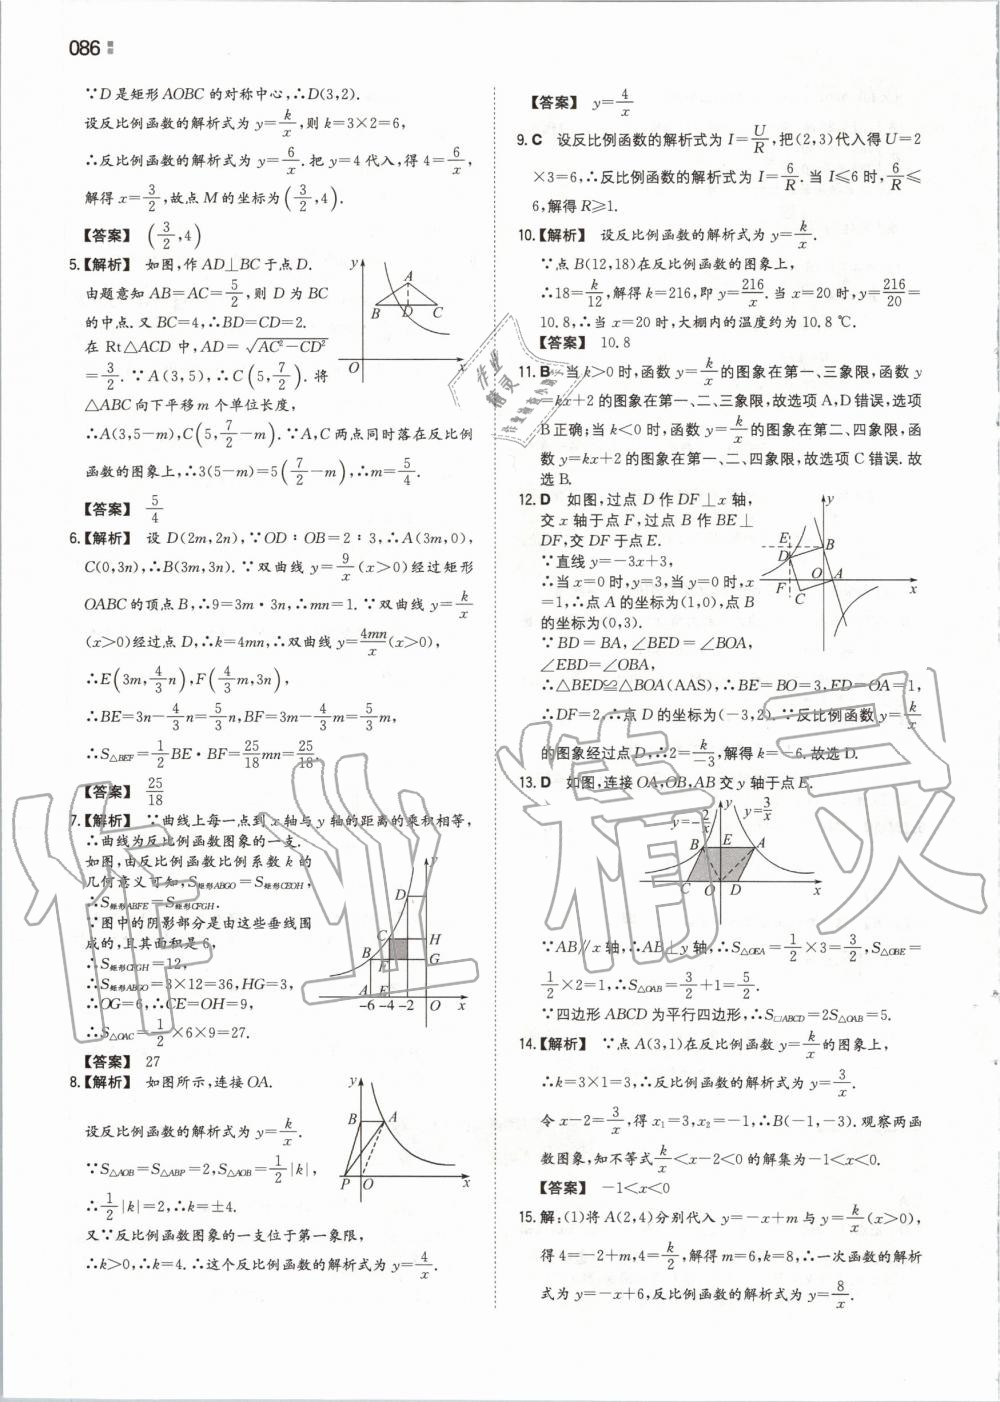 086
∵D是矩形AOBC的对称中心,∴D(3,2).
设反比例函数的解析式为y=k/x,则k=3×2=6,
∴反比例函数的解析式为y=6/x.把y=4代入,得4=6/x,
解得x=3/2,故点M的坐标为(3/2,4).
【答案】 (3/2,4)
5.【解析】 如图,作AD⊥BC于点D.
由题意知AB=AC=5/2,则D为BC
的中点.又BC=4,∴BD=CD=2.
在Rt△ACD中,AD=√(AC²-CD²)
=3/2.∵A(3,5),∴C(5,7/2).将
△ABC向下平移m个单位长度,
∴A(3,5-m),C(5,7/2-m).∵A,C两点同时落在反比例
函数的图象上,∴3(5-m)=5(7/2-m),∴m=5/4.
【答案】 5/4
y A B D C O x
6.【解析】 设D(2m,2n),∵OD∶OB=2∶3,∴A(3m,0),
C(0,3n),∴B(3m,3n).∵双曲线y=9/x(x>0)经过矩形
OABC的顶点B,∴9=3m·3n,∴mn=1.∵双曲线y=k/x
(x>0)经过点D,∴k=4mn,∴双曲线y=4mn/x(x>0),
∴E(3m,4/3n),F(4/3m,3n),
∴BE=3n-4/3n=5/3n,BF=3m-4/3m=5/3m,
∴S△BEF=1/2BE·BF=25/18mn=25/18.
【答案】 25/18
7.【解析】 ∵曲线上每一点到x轴与y轴的距离的乘积相等,
∴曲线为反比例函数图象的一支.
如图,由反比例函数比例系数k的
几何意义可知,S矩形ABGO=S矩形CEOH,
∴S矩形ABFE=S矩形CFGH.
∵图中的阴影部分是由这些垂线围
成的,且其面积是6,
∴S矩形CFGH=12,
∴S矩形ABGO=3×12=36,HG=3,
∴OG=6,∴CE=OH=9,
∴S△OAC=1/2×6×9=27.
【答案】 27
D C H B F G A E -6 -4 -2 O x
8.【解析】 如图所示,连接OA.
设反比例函数的解析式为y=k/x.
∵S△AOB=S△ABP=2,S△AOB=1/2|k|,
∴1/2|k|=2,∴k=±4.
又∵反比例函数图象的一支位于第一象限,
∴k>0,∴k=4.∴这个反比例函数的解析式为y=4/x.
y B A P O x
【答案】 y=4/x
9. C 设反比例函数的解析式为I=U/R,把(2,3)代入得U=2
×3=6,∴反比例函数的解析式为I=6/R.当I≤6时,6/R≤
6,解得R≥1.
10.【解析】 设反比例函数的解析式为y=k/x.
∵点B(12,18)在反比例函数的图象上,
∴18=k/12,解得k=216,即y=216/x.当x=20时,y=216/20=
10.8,∴当x=20时,大棚内的温度约为10.8 ℃.
【答案】 10.8
11. B 当k>0时,函数y=k/x的图象在第一、三象限,函数y
=kx+2的图象在第一、二、三象限,故选项A,D错误,选项
B正确;当k<0时,函数y=k/x的图象在第二、四象限,函
数y=kx+2的图象在第一、二、四象限,故选项C错误.故
选B.
12. D 如图,过点D作DF⊥x轴,
交x轴于点F,过点B作BE⊥
DF,交DF于点E.
∵直线y=-3x+3,
∴当x=0时,y=3,当y=0时,x
=1,∴点A的坐标为(1,0),点B
的坐标为(0,3).
∵BD=BA,∠BED=∠BOA,
∠EBD=∠OBA,
∴△BED≌△BOA(AAS),∴BE=BO=3,ED=OA=1,
∴DF=2,∴点D的坐标为(-3,2).∵反比例函数y=k/x
的图象经过点D,∴2=k/-3,解得k=-6.故选D.
y E B D O A F C x
13. D 如图,连接OA,OB,AB交y轴于点E.
y=-2/x y y=3/x B E A C O D x
∵AB∥x轴,∴AB⊥y轴,∴S△OEA=1/2×3=3/2,S△OBE=
1/2×2=1,∴S△OAB=3/2+1=5/2.
∵四边形ABCD为平行四边形,∴S□ABCD=2S△OAB=5.
14.【解析】 ∵点A(3,1)在反比例函数y=k/x的图象上,
∴k=3×1=3,∴反比例函数的解析式为y=3/x.
令x-2=3/x,得x₁=3,x₂=-1,∴B(-1,-3).观察两函
数图象,知不等式k/x<x-2<0的解集为-1<x<0.
【答案】 -1<x<0
15.解:(1)将A(2,4)分别代入y=-x+m与y=k/x(x>0),
得4=-2+m,4=k/2,解得m=6,k=8,∴一次函数的解析
式为y=-x+6,反比例函数的解析式为y=8/x.
作业精灵